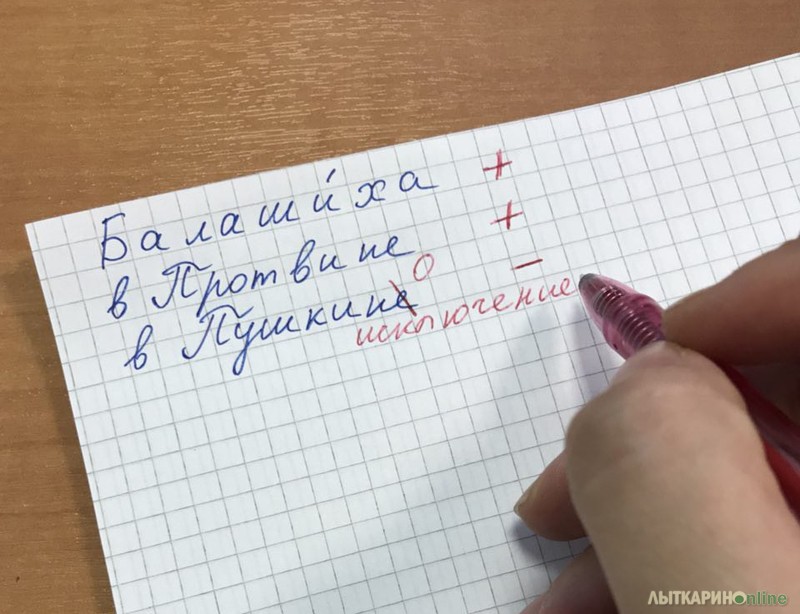 Балаши́ха +
в Протвине +
в Пушкине о –
исключение
ЛЫТКАРИНОonline